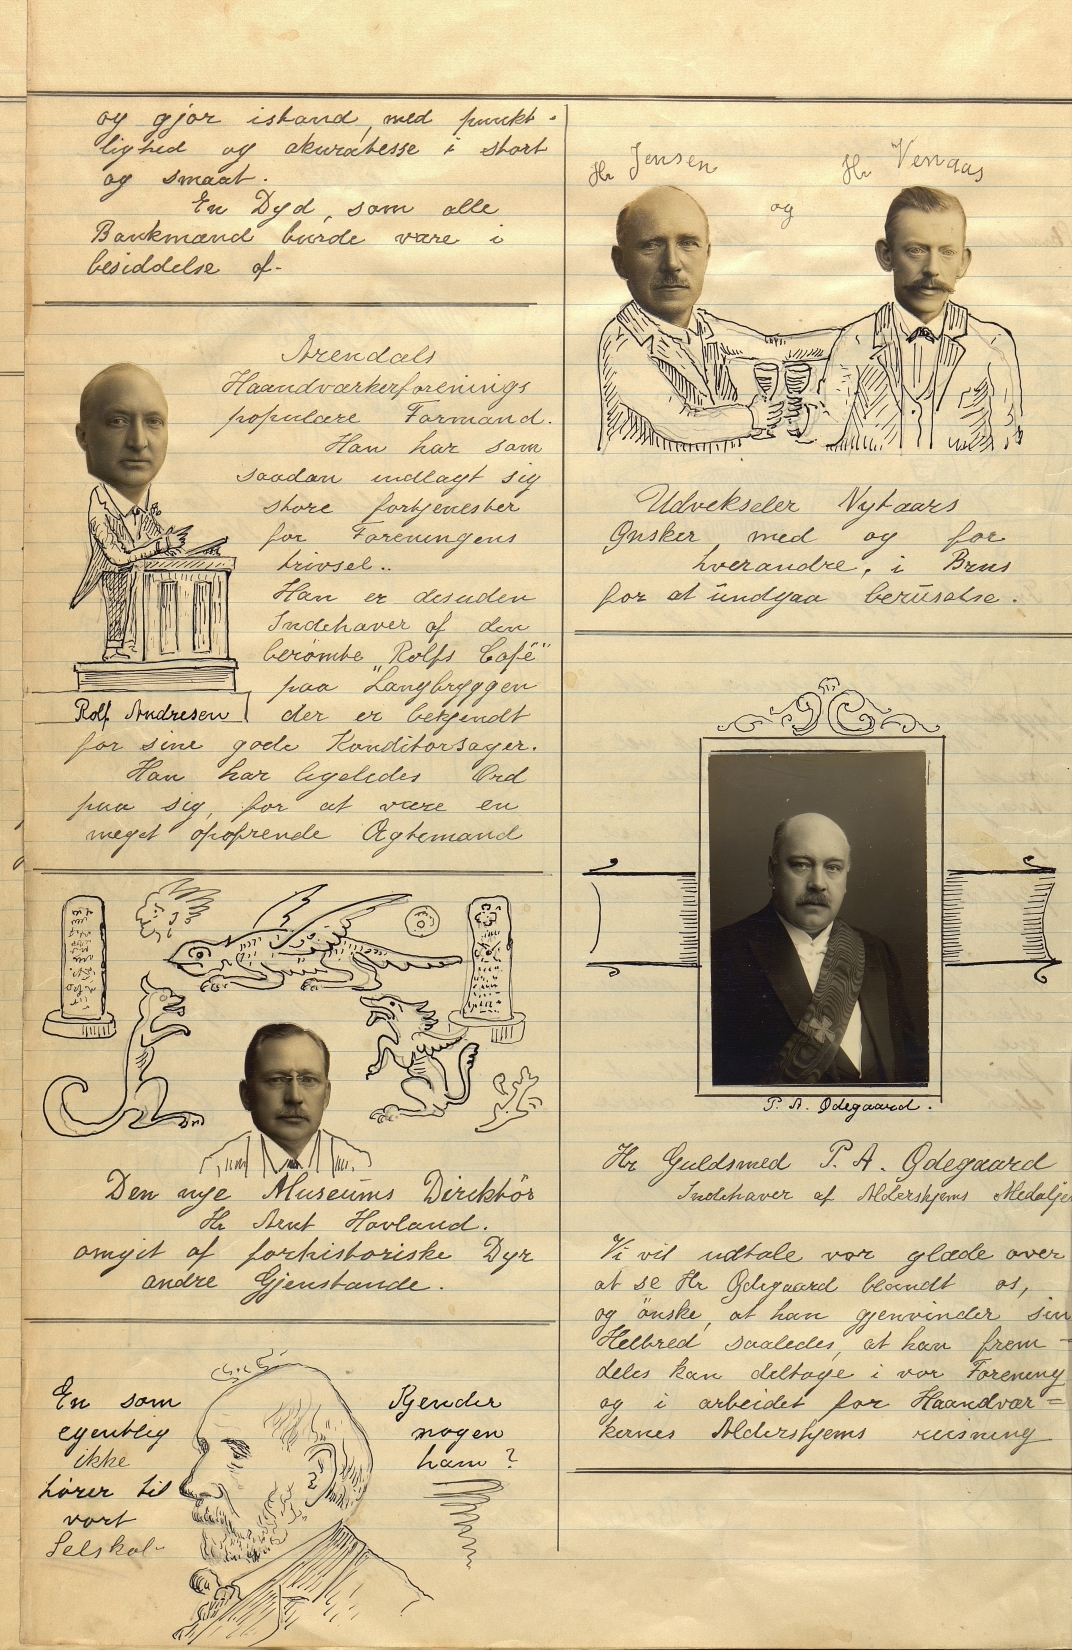 og gjør istand, med punkt-
lighed og akuratesse i stort
og smaat.
En Dyd, som alle
Bankmænd burde være i
besiddelse af-
Arendals
Haandværkerforenings
populære Formand.
Han har som
saadan indlagt sig
store fortjenester
for Foreningens
trivsel..
Han er desuden
Indehaver af den
berømte "Rolfs Café"
paa Langbryggen
Rolf Andresen
der er bekjendt
for sine gode Konditorsager.
Han har ligeledes Ord
paa sig, for at være en
meget opofrende Ægtemand
Den nye Museums Direktör
Hr Arnt Hovland.
omgit af forhistoriske Dyr
andre Gjenstande.
En som
egentlig
ikke
hører til
vort
Selskab-
Kjender
nogen
ham?
Hr Jensen
og
Hr Venaas
Udveksler Nytaars
Ønsker med og for
hverandre, i Brus
for at undgaa beruselse.
P. A. Ødegaard.
Hr Guldsmed P. A. Ødegaard
Indehaver af Aldershjems Medalje
Vi vil udtale vor glæde over
at se Hr Ødegaard blandt os,
og ønske, at han gjenvinder sin
Helbred saaledes, at han frem-
deles kan deltage i vor Forening
og i arbeidet for Haandvær=
kernes Aldershjems reisning